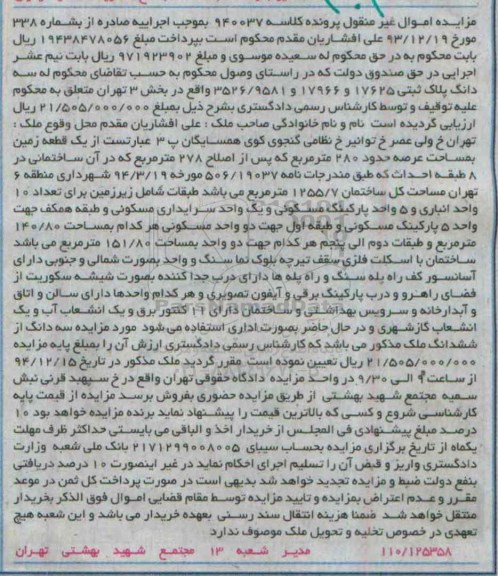 مزایده اموال غیر منقول پرونده کلاسه ۹۴۰۰۳۷ بموجب اجراییه صادره از بشماره ۳۳۸
مورخ ۹۳/۱۲/۱۹ علی افشاریان مقدم محکوم است بپرداخت مبلغ ۱۹۴۳۸۴۷۸۰۵۶ ریال
بابت محکوم به در حق محکوم له سعیده موسوی و مبلغ ۹۷۱۹۲۳۹۰۲ ریال بابت نیم عشر
اجرایی در حق صندوق دولت که در راستای وصول محکوم به حسب تقاضای محکوم له سه
دانگ پلاک ثبتی ۱۷۶۲۵ و ۱۷۹۶۶ و ۳۵۲۶/۹۵۸۱ واقع در بخش ۳ تهران متعلق به محکوم
علیه توقیف و توسط کارشناس رسمی دادگستری بشرح ذیل بمبلغ ۲۱/۵۰۵/۰۰۰/۰۰۰ ریال
ارزیابی گردیده است نام و نام خانوادگی صاحب ملک : علی افشاریان مقدم محل وقوع ملک :
تهران خ ولی عصر خ توانیر خ نظامی گنجوی کوی همسایگان پ ۳ عبارتست از یک قطعه زمین
بمساحت عرصه حدود ۲۸۰ مترمربع که پس از اصلاح ۲۷۸ مترمربع که در آن ساختمانی در
۸ طبقه احداث که طبق مندرجات نامه ۵۰۶/۱۹۰۳۷ مورخه ۹۴/۳/۱۹ شهرداری منطقه ۶
تهران مساحت کل ساختمان ۱۲۵۵/۷ مترمربع می باشد طبقات شامل زیرزمین برای تعداد ۱۰
واحد انباری و ۵ واحد پارکینگ مسکونی و یک واحد سرایداری مسکونی و طبقه همکف جهت
واحد ۵ پارکینگ مسکونی و طبقه اول جهت دو واحد مسکونی هر کدام بمساحت ۱۴۰/۸۰
مترمربع و طبقات دوم الی پنجم هر کدام جهت دو واحد بمساحت ۱۵۱/۸۰ مترمربع می باشد
ساختمان با اسکلت فلزی سقف تیرچه بلوک نما سنگ و واحد بصورت شمالی و جنوبی دارای
آسانسور کف راه پله سنگ و راه پله ها دارای درب جدا کننده بصورت شیشه سکوریت از
فضای راهرو و درب پارکینگ برقی و آیفون تصویری و هر کدام واحدها دارای سالن و اتاق
و آبدارخانه و سرویس بهداشتی و ساختمان دارای ۱۱ کنتور برق و یک انشعاب آب و یک
انشعاب گازشهری و در حال حاضر بصورت اداری استفاده می شود مورد مزایده سه دانگ از
ششدانگ ملک مذکور می باشد که کارشناس رسمی دادگستری ارزش آن را بمبلغ پایه مزایده
۲۱/۵۰۵/۰۰۰/۰۰۰ ریال تعیین نموده است مقرر گردید ملک مذکور در تاریخ ۹۴/۱۲/۱۵
از ساعت ۹ الی ۹/۳۰ در واحد مزایده دادگاه حقوقی تهران واقع در خ سپهبد قرنی نبش
سمیه مجتمع شهید بهشتی از طریق مزایده حضوری بفروش برسد مزایده از قیمت پایه
کارشناسی شروع و کسی که بالاترین قیمت را پیشنهاد نماید برنده مزایده خواهد بود ۱۰
درصد مبلغ پیشنهادی فی المجلس از خریدار اخذ و الباقی می بایستی حداکثر ظرف مهلت
یکماه از تاریخ برگزاری مزایده بحساب سیبای ۲۱۷۱۲۹۹۰۰۸۰۰۵ بانک ملی شعبه وزارت
دادگستری واریز و قبض آن را تسلیم اجرای احکام نماید در غیر اینصورت ۱۰ درصد دریافتی
بنفع دولت ضبط و مزایده تجدید خواهد شد بدیهی است در صورت پرداخت کل ثمن در موعد
مقرر و عدم اعتراض بمزایده و تایید مزایده توسط مقام قضایی اموال فوق الذکر بخریدار
منتقل خواهد شد ضمنا هزینه انتقال سند رسمی بعهده خریدار می باشد و این شعبه هیچ
تعهدی در خصوص تخلیه و تحویل ملک موصوف ندارد
۱۱۰/۱۲۵۳۵۸ مدیر شعبه ۱۳ مجتمع شهید بهشتی تهران